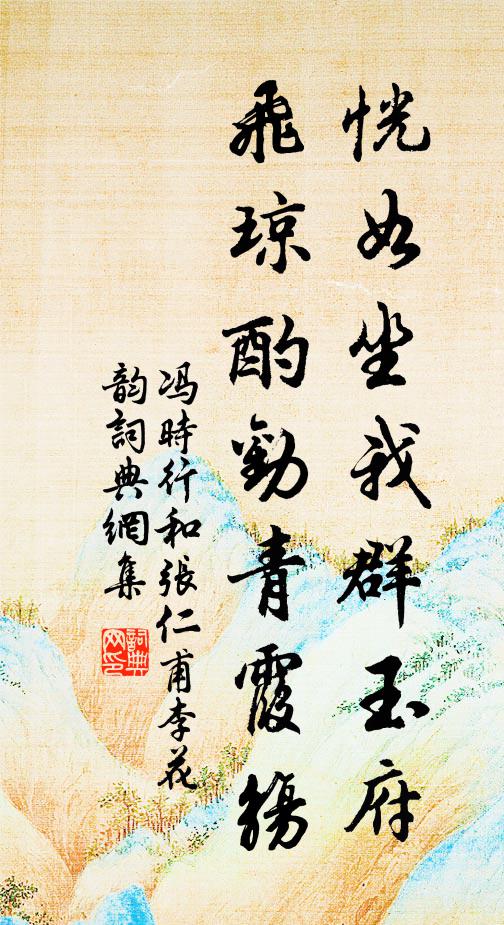 恍如坐我群玉府
飛琼酌勸青霞觴
冯時行和張仁甫李花
韵詞典網集
詞典
网印